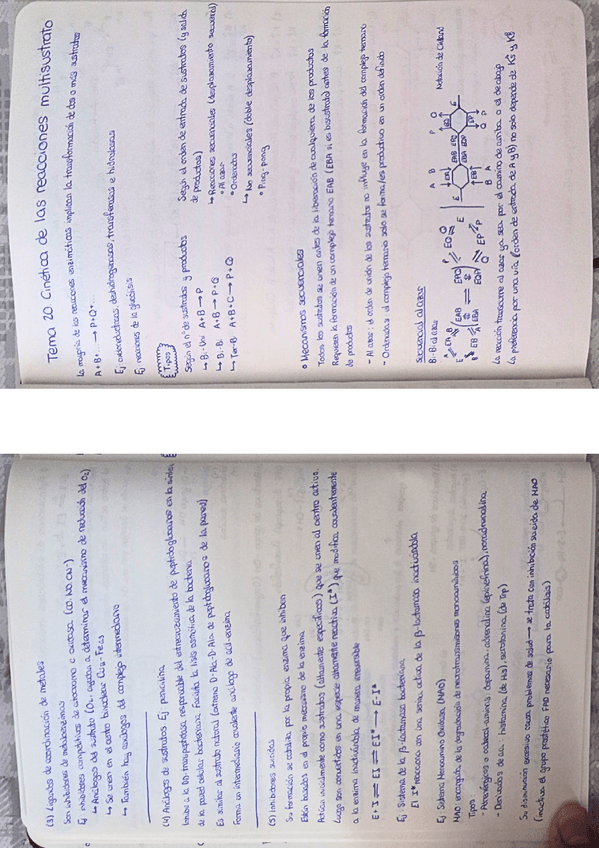 Tema 20 Cinética de las reacciones multisustrato
La mayoría de las reacciones enzimáticas implican la transformación de dos o más sustratos
A + B + ... → P + Q + ...
Ej oxidorreductasas, deshidrogenasas, transferasas e hidrolasas
Ej reacciones de la glucólisis
Tipos
Según el nº de sustratos y productos
↳ Bi-Uni A + B → P
↳ Bi-Bi A + B → P + Q
↳ Ter-Bi A + B + C → P + Q
Según el orden de entrada de sustratos (y salida
de productos)
↳ Reacciones secuenciales (desplazamiento secuencial)
• Al azar
• Ordenadas
↳ No secuenciales (doble desplazamiento)
• Ping-pong
• Mecanismos secuenciales
Todos los sustratos se unen antes de la liberación de cualquiera de los productos
Requieren la formación de un complejo ternario EAB (EBA si es bisustrato) antes de la formación
de productos
- Al azar: el orden de unión de los sustratos no influye en la formación del complejo ternario
- Ordenados: el complejo ternario solo se forma/es productivo en un orden definido
Secuencial al azar
Bi-Bi al azar
Notación de Cleland
A B P Q
E EA EAB EPQ EQ E
EB EBA EQP EP
B A Q P
La reacción transcurre al azar ya sea por el camino de arriba o el de abajo
La preferencia por una vía (orden de entrada de A y B) no solo depende de
(3) Ligandos de coordinación de metales
Son inhibidores de metaloenzimas
Ej inhibidores competitivos de citocromo c oxidasa (CO, NO, CN⁻)
↳ Análogos del sustrato (O₂, ayudan a determinar el mecanismo de reducción del O₂)
↳ Se unen en el centro binuclear
↳ También hay análogos del complejo intermediario
(4) Análogos de sustratos Ej penicilina
de la pared celular bacteriana. Facilita la lisis osmótica de la bacteria
Es similar al sustrato natural (extremo D-Ala-D-Ala de peptidoglucanos de la pared)
Forma un intermediario covalente análogo de acil-enzima
(5) Inhibidores suicidas
Su formación se cataliza por la propia enzima que inhiben
Están basados en el propio mecanismo de la enzima
Actúan inicialmente como sustratos (altamente específicos) que se unen al centro activo.
Luego son convertidos en una especie altamente reactiva (I*) que modifica covalentemente
a la enzima inactivándola de manera irreversible
E + I ⇌ EI ⇌ EI* → E-I*
Ej: Sistema de la β-lactamasa bacteriana
EI* reacciona con una serina activa de la β-lactamasa inactivándola
Ej: Sistema Monoamino Oxidasa (MAO)
MAO encargada de la degradación de neurotransmisores monoamínicos
Tipos:
- Adrenérgicos o catecolaminas: dopamina, adrenalina (epinefrina), noradrenalina
- Derivados de aa: histamina (de His), serotonina (de Trp)
Su disminución excesiva causa problemas de salud → se trata con inhibición suicida de MAO
(inactiva el grupo prostético FAD necesario para la catálisis)